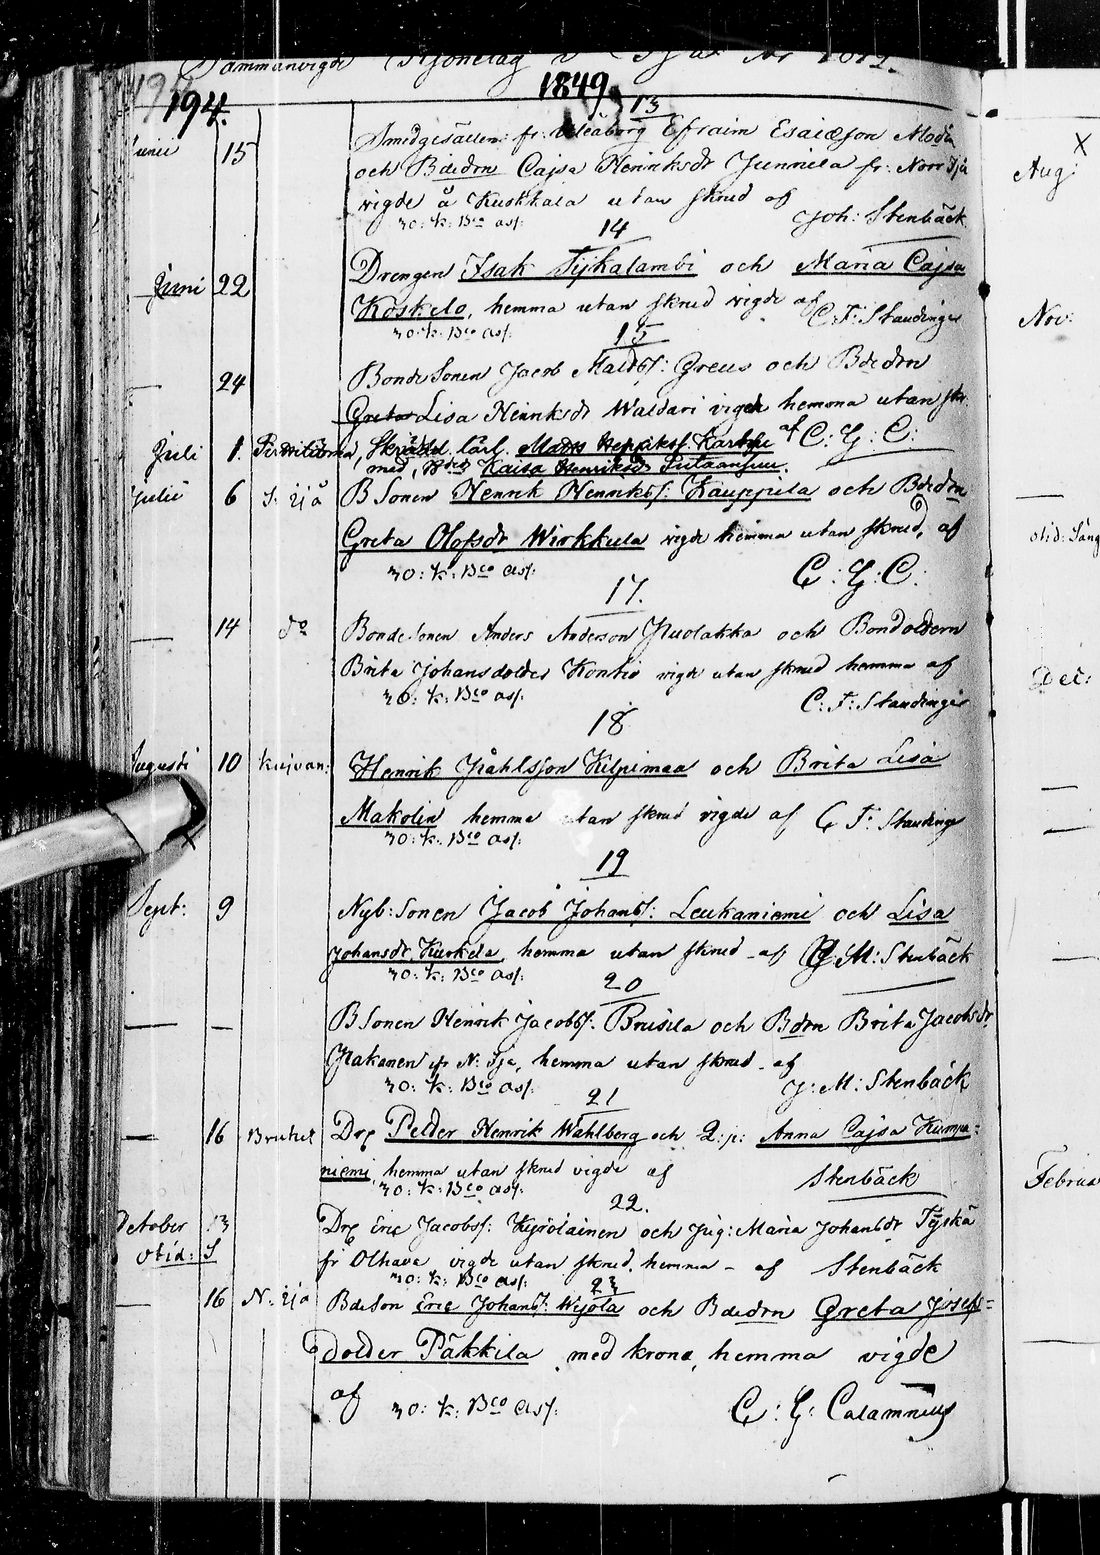 Sammanvigde
1849
194.
13
Junii 15 Smidgesällen: fr: Uleåborg Efraim Esaiæson Modin
och Bdedrn Cajsa Henriksdr Junnila fr: Norr Ijå
vigde å Kurkkala utan skrud af Joh: Stenbäck
30: k: Bco ass:
14
Juni 22 Drengen Isak Tyikalambi och Maria Cajsa
Koskelo, hemma utan skrud vigde af C: F: Staudinger
30: k: Bco ass:
15
— 24 BondeSonen Jacob Matds: Greus och Bdedrn
Greta Lisa Henriksdr Waldari vigde hemma utan skr:
af C: G: C:
Juli 1. Skrädd. lärl. Matts Henriks. Karhu
med, Bded Kaisa Henriksdr
Julii 6 S: Ijå BSonen Henrik Henriks: Kauppila och Bdedrn
Greta Olofsdr Wirkkula vigde hemma utan skrud, af
30: k: Bco ass: C: G: C:
17.
— 14 do BondeSonen Anders Anderson Huolakka och Bonddoldern
Brita Johansdolder Kontio vigde utan skrud hemma af
30: k: Bco ass: C: F: Staudinger
18
Augusti 10 Kuivan: Henrik Påhlsson Kilpimaa och Brita Lisa
Makolin hemma utan skrud vigde af C F: Staudinger
30: k: Bco ass:
19
Sept: 9 Nyb: Sonen Jacob Johans: Leukaniemi och Lisa
Johansdr Kurkela, hemma utan skrud af M: Stenbäck
30: k: Bco ass:
20
— — BSonen Henrik Jacobs: Brusila och Bdrn Brita Jacobsdr
Hakanen fr N: Ijå, hemma utan skrud af
30: k: Bco ass: J: M: Stenbäck
21
— 16 Bruket Drg Petter Henrik Wahlberg och Q: p: Anna Cajsa Kumpu=
niemi, hemma utan skrud vigde af Stenbäck
30: k: Bco ass:
22.
October 13 Drg Eric Jacobs: Kyrölainen och Pig: Maria Johansdr Tyskä
otid: S fr Olhava vigde utan skrud, hemma – af Stenbäck
30: k: Bco ass:
23
— 16 N: Ijå BdeSon Eric Johans: Wejola och Bdedrn Greta Joseps=
dolder Päkkila med krona, hemma vigde
af 30: k: Bco ass: C: G: Calamnius
Aug: X
Nov:
otid: Säng
Dec:
Februa